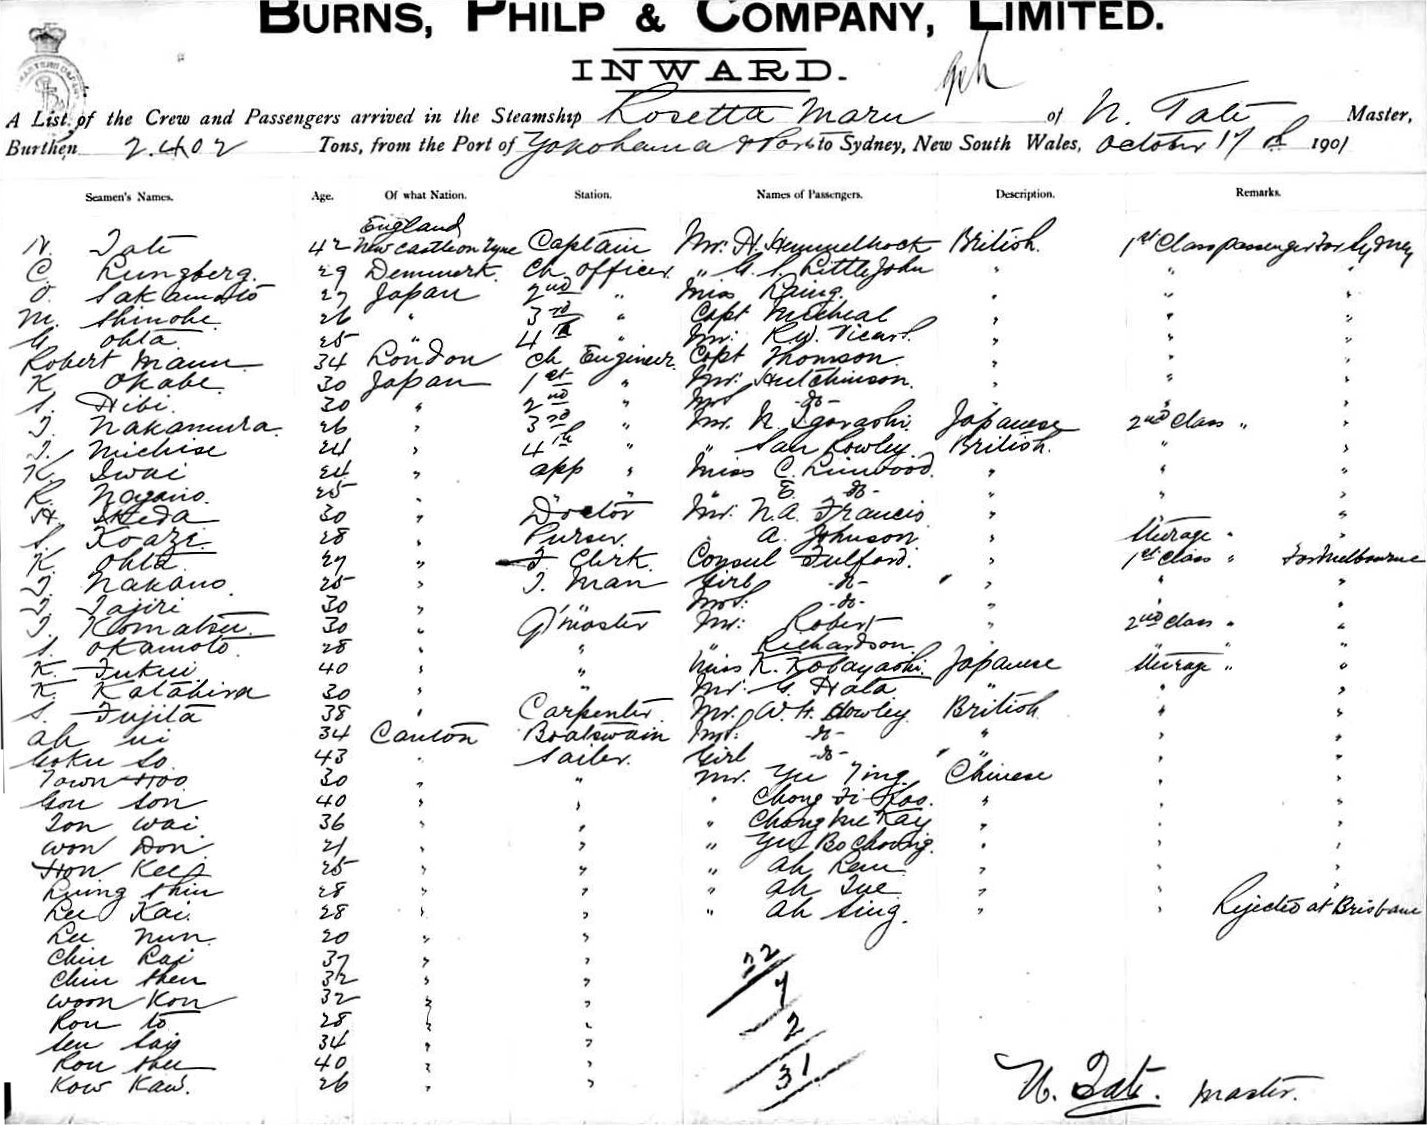 BURNS, PHILP & COMPANY, LIMITED.
INWARD.
A List of the Crew and Passengers arrived in the Steamship Rosetta Maru of N. Tate Master,
Burthen 2.402 Tons, from the Port of Yokohama & Ports to Sydney, New South Wales, October 17th 1901
Seamen's Names. Age. Of what Nation. Station. Names of Passengers. Description. Remarks.
England
N. Tate 42 New Castle on Tyne Captain Mr. H. Hemmelhock British 1st Class passenger for Sydney
C. Lungberg. 29 Denmerk Ch Officer " G. S. Little John " " "
O. Sakamoto 27 Japan 2nd " Miss Laing. " " "
M. Shinobe 26 " 3rd " Capt Micheal " " "
G. Ohta. 25 " 4th " Mr. R.W. Vicars. " " "
Robert Mann 34 London Ch Engineer Capt Thomson " " "
K. Okabe. 30 Japan 1st " Mr. Hutchinson. " " "
S. Hibi. 30 " 2nd " Mrs -do- " " "
T. Nakamura. 26 " 3rd " Mr. N. Igarashi Japanese 2nd Class " "
T. Michise 24 " 4th " " Sau Rowley British. " "
K. Iwai 24 " app " Miss C. Linwood. " " "
R. Nagano. 25 " " " " E. -do- " " "
H. Ikeda 30 " Doctor Mr. N.A. Francis " " "
S. Koaze. 28 " Purser. " A. Johnson " Steerage " "
K. Ohta 27 " Clerk. Consul Fulford. " 1st Class " For Melbourne
T. Nakano. 25 " T. Man Girl -do- " " "
T. Tajiri 30 " " Mrs. -do- " " "
T. Komatsu. 30 " Q'master Mr. Robert " 2nd Class " "
S. Okamoto. 28 " " " Richardson. " " " "
K. Fukui 40 " " Miss K. Kobayashi. Japanese Steerage " "
K. Katahira 30 " " Mr. G. Hata " " "
S. Fujita 38 " Carpenter. Mr. W. H. Howley British " "
Ah ui 34 Canton Boatswain Mrs. -do- " " "
Goku So. 43 " Sailor. Girl -do- " " "
Town Hoo 30 " " Mr. Yee Ting. Chinese " "
Gou Son 40 " " " Chong Fi Hoo. " " "
Ton Wai 36 " " " Chong Mee Kay " " "
Won Don 21 " " " Yee Bo Choong. " " "
Hon Kee 25 " " " Ah Lem " " "
Luing Shin 28 " " " Ah Tue " " "
Lee Kai. 28 " " " Ah Sing. " " Rejected at Brisbane
Lee Nun. 20 " "
Chin Kai 37 " " 22
Chin Shen 32 " " 7
Woon Kon 32 " "
Kou To 28 " " 2
Sen Sai 34 " "
Kou Shee 40 " " 31
Kow Kaw. 26 " " N. Tate. Master.